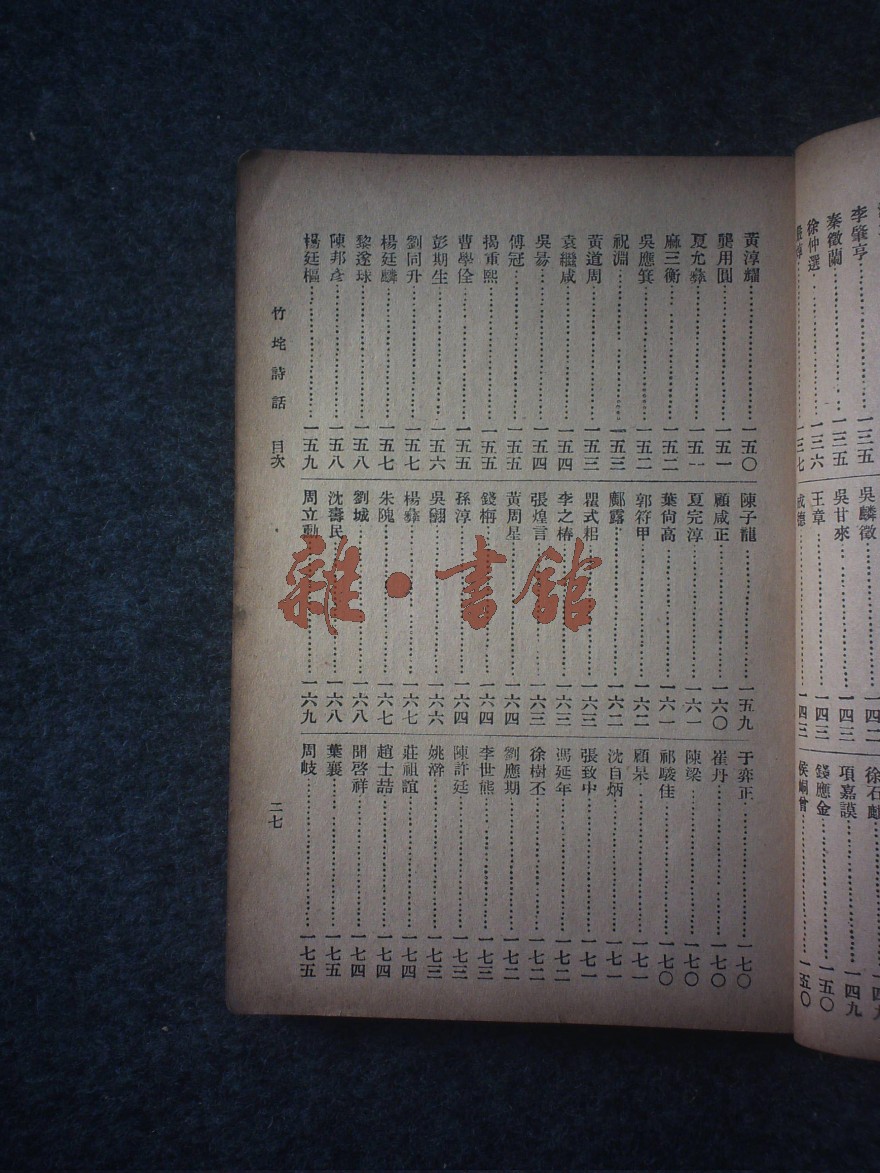 李肇亨……一三五
秦徵蘭……一三五
徐仲選……一三六
一三七
吳麟徵……一四二
吳甘來……一四三
王章……一四三
成德……一四三
徐石麒……一四九
項嘉謨……一四九
錢應金……一五〇
侯峒曾……一五〇
黃淳耀……一五〇
龔用圓……一五一
夏允彝……一五一
麻三衡……一五二
吳應箕……一五二
祝淵……一五三
黃道周……一五三
袁繼咸……一五四
吳易……一五四
傅冠……一五五
揭重熙……一五五
曹學佺……一五五
彭期生……一五六
劉同升……一五七
楊廷麟……一五七
黎遂球……一五八
陳邦彥……一五八
楊廷樞……一五九
陳子龍……一五九
顧咸正……一六〇
夏完淳……一六一
葉尙高……一六一
郭符甲……一六二
鄺露……一六二
瞿式耜……一六三
李之椿……一六三
張煌言……一六三
黃周星……一六四
錢栴……一六四
孫淳……一六四
吳䎖……一六六
楊彝……一六七
朱隗……一六七
劉城……一六八
沈壽民……一六八
周立勳……一六九
于奕正……一七〇
崔丹……一七〇
陳梁……一七〇
祁駿佳……一七〇
顧杲……一七一
沈自炳……一七一
張致中……一七一
馮延年……一七二
徐樹丕……一七二
劉應期……一七二
李世熊……一七三
陳許廷……一七三
姚澣……一七三
莊祖誼……一七四
趙士喆……一七四
聞啓祥……一七四
葉襄……一七五
周岐……一七五
竹垞詩話 目次 二七
雜·書館